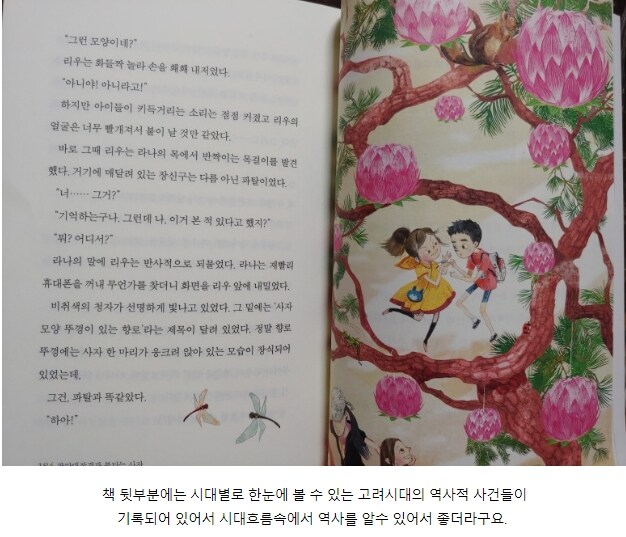 "그런 모양이네?"
리우는 화들짝 놀라 손을 홰홰 내저었다.
"아니야! 아니라고!"
하지만 아이들이 키득거리는 소리는 점점 커졌고 리우의
얼굴은 너무 빨개져서 불이 날 것만 같았다.
바로 그때 리우는 라나의 목에서 반짝이는 목걸이를 발견
했다. 거기에 매달려 있는 장신구는 다름 아닌 파탈이었다.
"너…… 그거?"
"기억하는구나. 그런데 나, 이거 본 적 있다고 했지?"
"뭐? 어디서?"
라나의 말에 리우는 반사적으로 되물었다. 라나는 재빨리
휴대폰을 꺼내 무언가를 찾더니 화면을 리우 앞에 내밀었다.
비취색의 청자가 선명하게 빛나고 있었다. 그 밑에는 '사자
모양 뚜껑이 있는 향로'라는 제목이 달려 있었다. 정말 향로
뚜껑에는 사자 한 마리가 웅크려 앉아 있는 모습이 장식되어
있었는데,
그건, 파탈과 똑같았다.
"하아!"
책 뒷부분에는 시대별로 한눈에 볼 수 있는 고려시대의 역사적 사건들이
기록되어 있어서 시대흐름속에서 역사를 알수 있어서 좋더라구요.